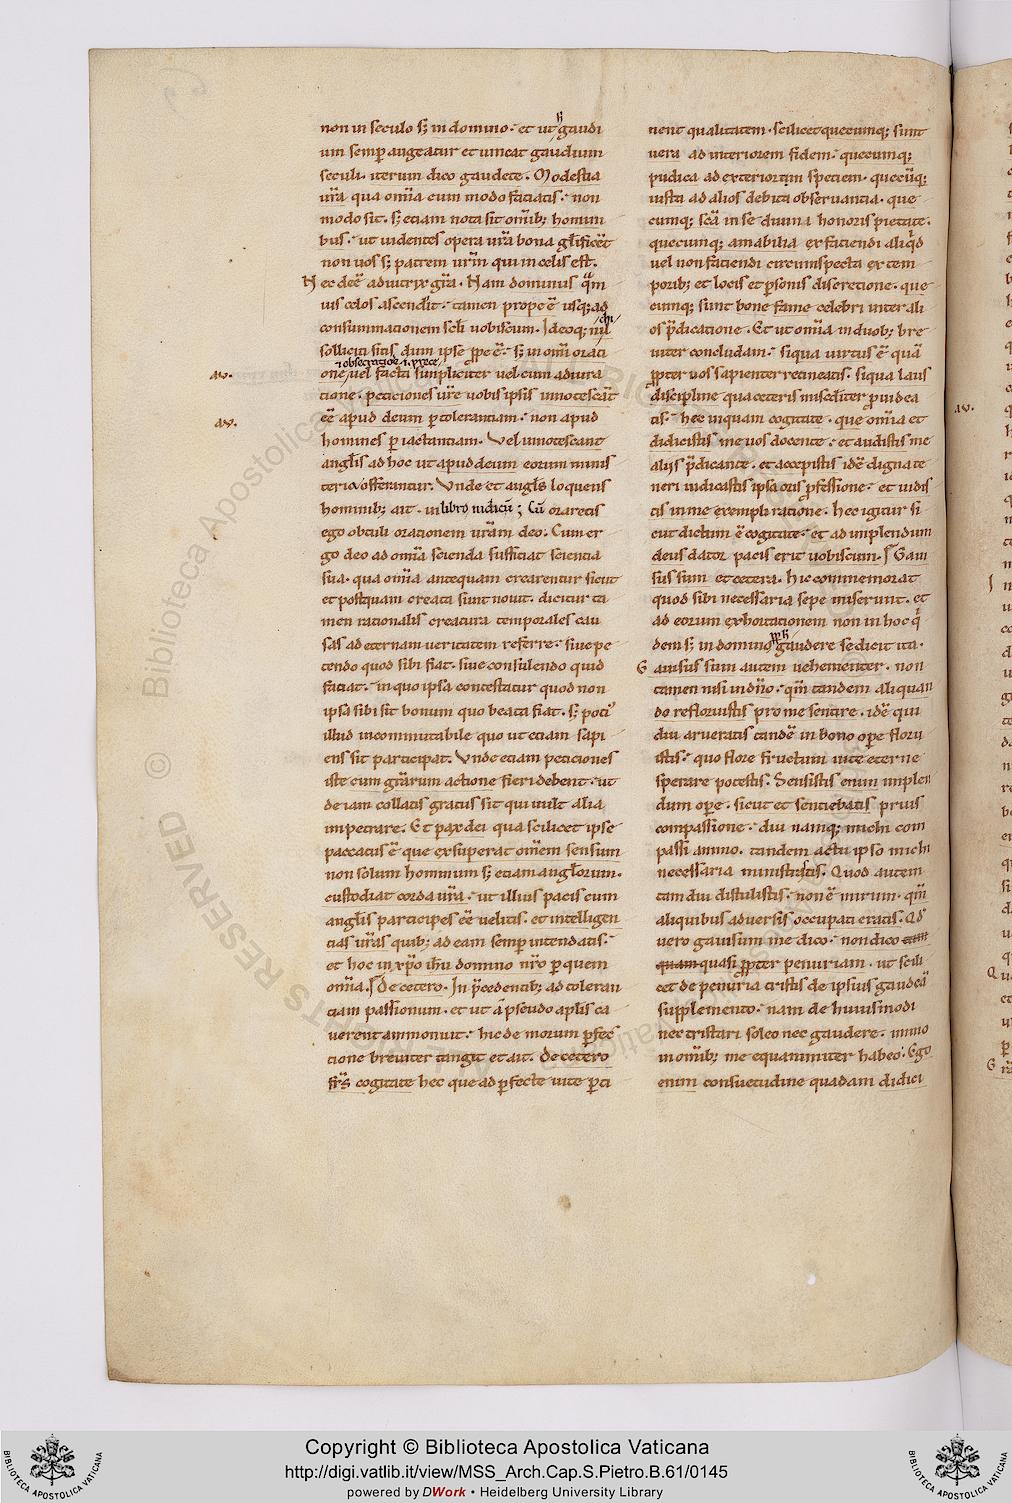 non in seculo s; in domino. et ut gaudi
um semp augeatur et uincat gaudium
seculi. iterum dico gaudete. Modestia
ura qua omia cum modo faciatis. non
modo sit. s; etiam nota sit omib; homini
bus. ut uidentes opera ura bona glificēt
non uos s; patrem urm qui in celis est.
Hec deē adiutrix gra. Nam dominus qm
uis celos ascendit. tamen prope ē usq; ad
consummationem scli uobiscum. Ideoq; nil
solliciti sitis dum ipse ppe ē. s; in omi orati
one uel facta simpliciter uel cum adiura
tione. petitiones ure uobis ipsis innotescāt
eē apud deum p tolerantiam. non apud
homines p iactantiam. Vel innotescant
anglis ad hoc ut apud deum eorum minis
terio offerantur. Vnde et angls loquens
hominib; ait. in libro iudicū; Cū oraretis
ego obtuli orationem uram deo. Cum er
go deo ad omia scienda sufficiat scientia
sua. qua omia antequam crearentur sicut
et postquam creata sunt nouit. dicitur ta
men rationalis creatura temporales cau
sas ad eternam ueritatem referre. siue pe
tendo quod sibi fiat. siue consulendo quid
faciat. in quo ipsa contestatur quod non
ipsa sibi sit bonum quo beata fiat. s; poti'
illud incommutabile quo ut etiam sapi
ens sit participat. Vnde etiam peticiones
iste cum grarum actione fieri debent. ut
de iam collatis gratus sit qui uult alia
impetrare. Et pax dei qua scilicet ipse
paccatus ē que exsuperat omem sensum
non solum hominum s; etiam anglorum.
custodiat corda ura. ut illius pacis cum
anglis participes eē uelitis. et intelligen
tias uras quib; ad eam semp intendatis.
et hoc in xpo ihu domino nro p quem
omia. De cetero. In pcedentib; ad toleran
tiam passionum. et ut a pseudo aplis ca
uerent ammonuit. hic de morum pfec
tione breuiter tangit et ait. de cetero
frs cogitate hec que ad pfecte uite pti
nent qualitatem. scilicet quecumq; sunt
uera ad interiorem fidem. quecumq;
pudica ad exteriorem speciem. quecūq;
iusta ad alios debita obseruantia. que
cumq; sca in se diuini honoris pietate.
quecumq; amabilia ex faciendi aliqd
uel non faciendi circumspecta ex tem
porib; et locis et psonis discretione. que
cumq; sunt bone fame celebri inter ali
os pdicatione. Et ut omia in duob; bre
uiter concludam. siqua uirtus ē quā
ppter uos sapienter retineatis. siqua laus
discipline qua ceteris misedliter prouidea
tis. hec inquam cogitate. que omia et
didicistis me uos docente. et audistis me
aliis pdicante. et accepistis idē digna te
neri iudicastis ipsa oris pfessione. et uidis
tis in me exempli ratione. hec igitur si
cut dictum ē cogitate. et ad implendum
deus dator pacis erit uobiscum. Gaui
sus sum et cetera. hic commemorat
quod sibi necessaria sepe miserunt. et
ad eorum exhortationem non in hoc q
dem s; in domino gaudere se dicit ita.
Gauisus sum autem uehementer. non
tamen nisi in dno. qm tandem aliquan
do refloruistis pro me sentire. idē qui
diu arueratis tandē in bono ope floru
istis. quo flore fructum uite eterne
sperare potestis. Sensistis enim implen
dum ope. sicut et sentiebatis prius
compassione. diu namq; michi com
passi animo. tandem actu ipso michi
necessaria ministratis. Quod autem
tam diu distulistis. non ē mirum. qm
aliquibus aduersis occupati eratis. Qd
uero gauisum me dico. non dico eam
quam quasi ppter penuriam. ut scili
cet de penuria tristis de ipsius gaudeā
supplemento. nam de huiusmodi
nec tristari soleo nec gaudere. immo
in omib; me equanimiter habeo. Ego
enim consuetudine quadam didici
Copyright © Biblioteca Apostolica Vaticana
http://digi.vatlib.it/view/MSS_Arch.Cap.S.Pietro.B.61/0145
powered by DWork • Heidelberg University Library